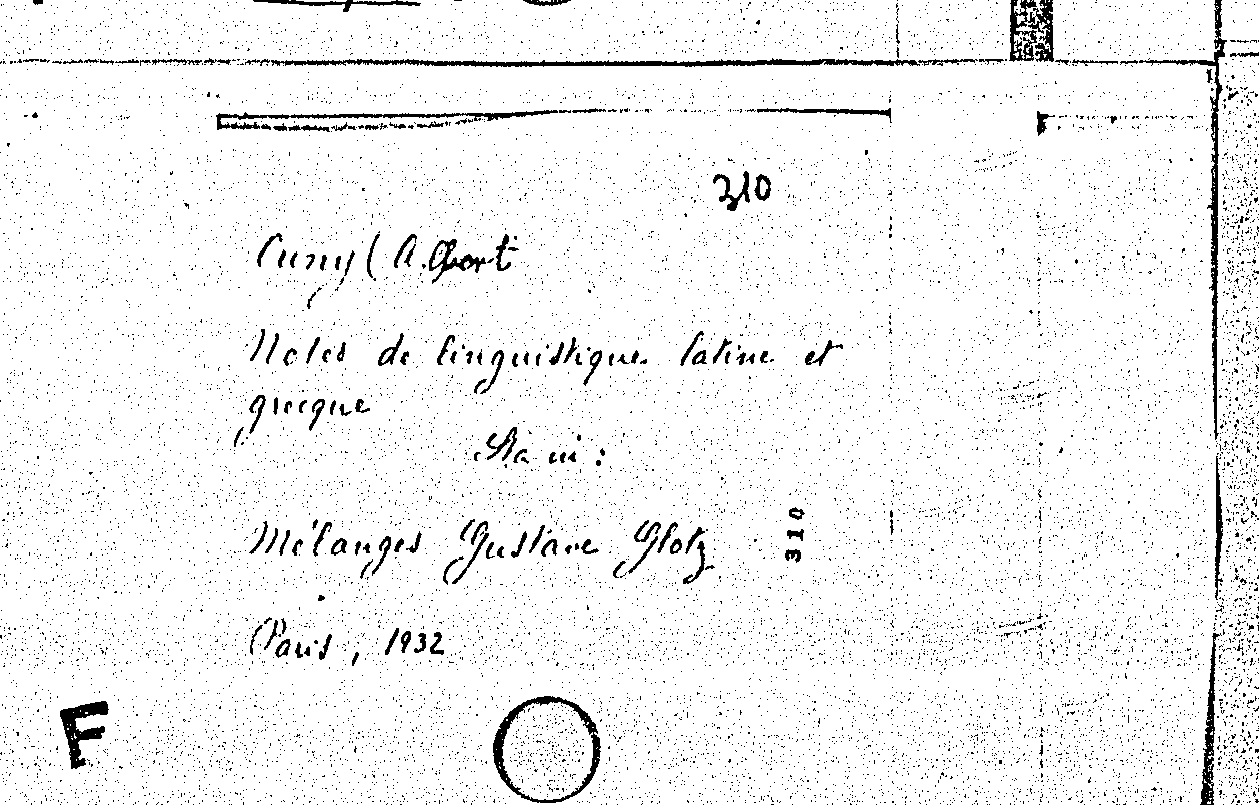 310
Cuny (Albert
Notes de linguistique latine et
grecque
Sta in:
Mélanges Gustave Glotz
310
Paris, 1932
F